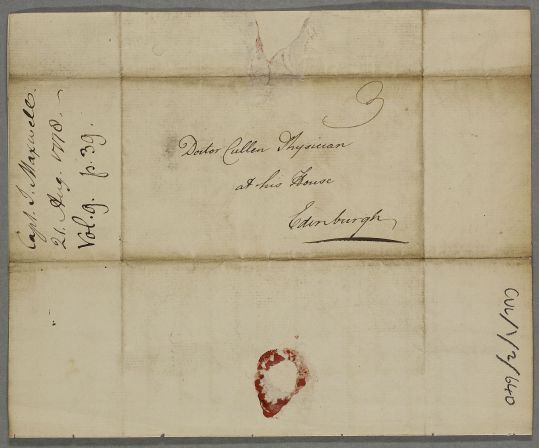 3
Doctor Cullen Physician
at his House
Edinburgh
Capt. J. Maxwell.
21. Aug. 1778.
Vol. 9. p. 39.
CUL/1/2/640